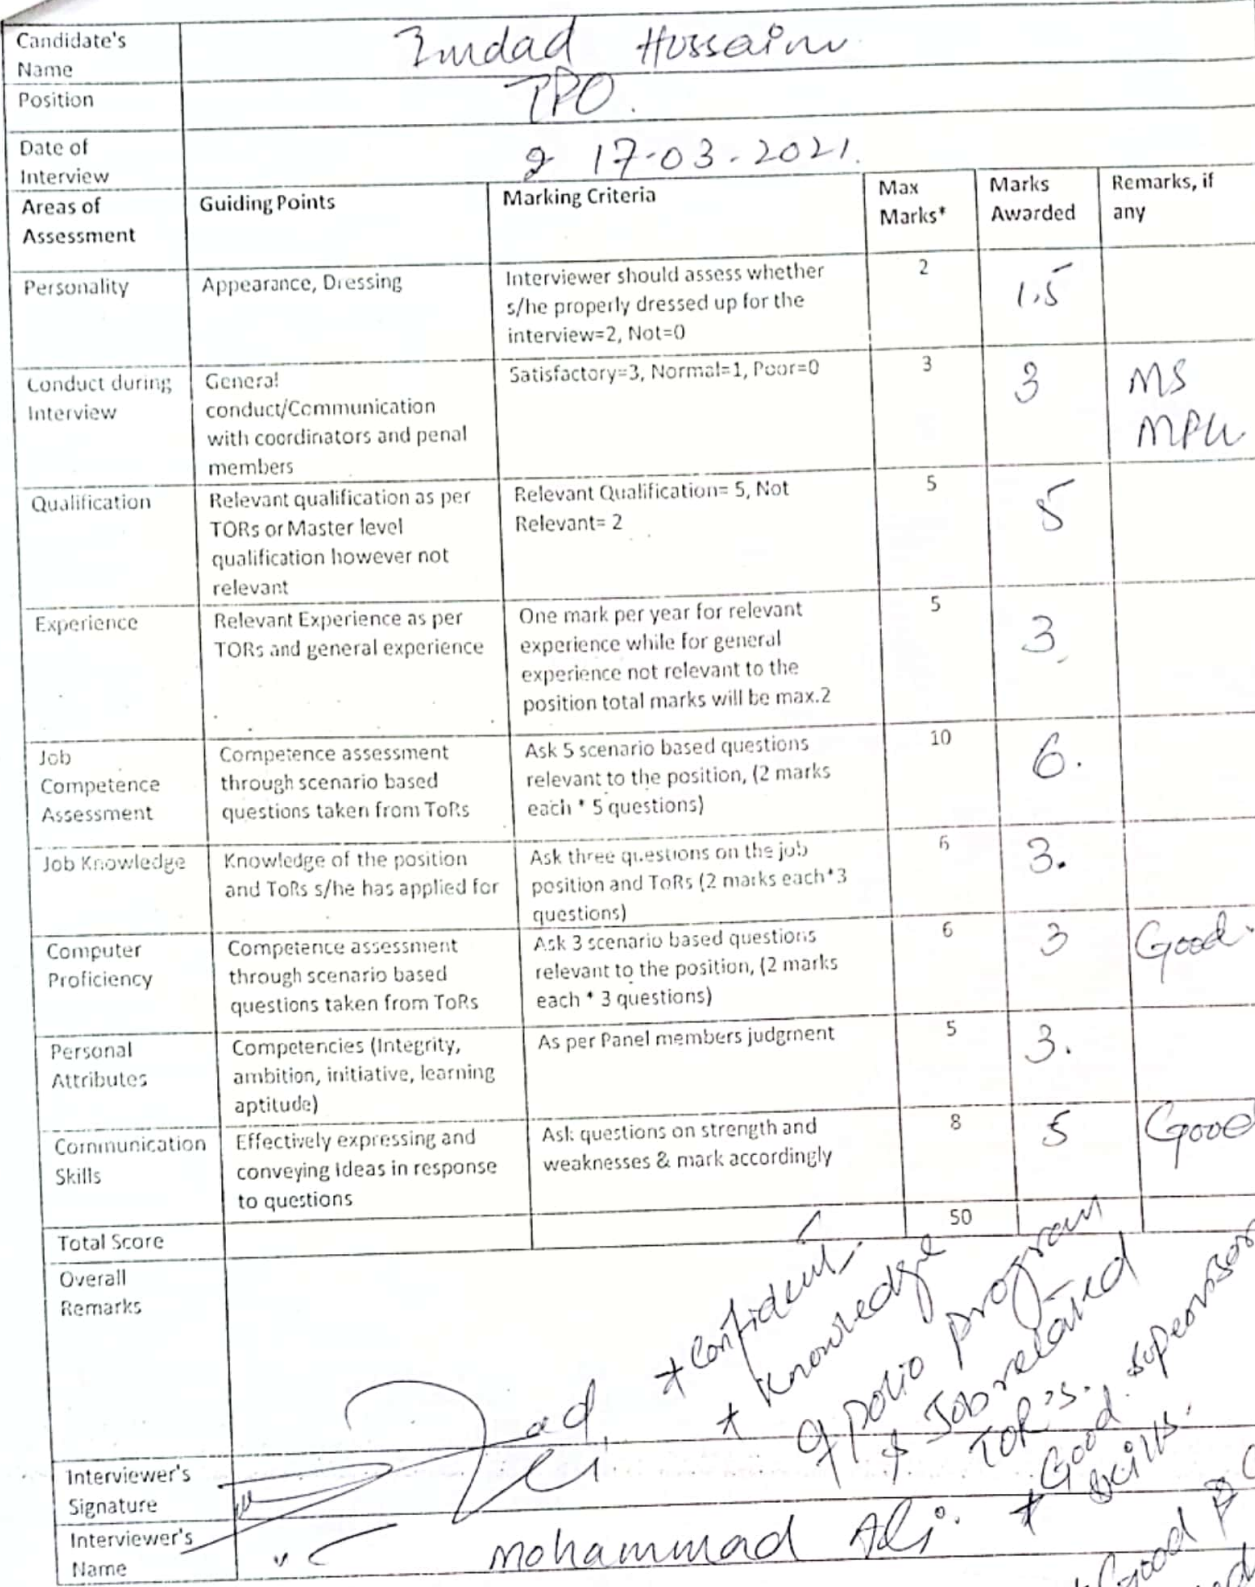 Candidate's Name Imdad Hussain
Position TPO.
Date of Interview 17-03-2021.
Areas of Assessment Guiding Points Marking Criteria Max Marks* Marks Awarded Remarks, if any
Personality Appearance, Dressing Interviewer should assess whether s/he properly dressed up for the interview=2, Not=0 2 1.5
Conduct during Interview General conduct/Communication with coordinators and penal members Satisfactory=3, Normal=1, Poor=0 3 3 MS
Qualification Relevant qualification as per TORs or Master level qualification however not relevant Relevant Qualification= 5, Not Relevant= 2 5 5
Experience Relevant Experience as per TORs and general experience One mark per year for relevant experience while for general experience not relevant to the position total marks will be max.2 5 3
Job Competence Assessment Competence assessment through scenario based questions taken from ToRs Ask 5 scenario based questions relevant to the position, (2 marks each * 5 questions) 10 6.
Job Knowledge Knowledge of the position and ToRs s/he has applied for Ask three questions on the job position and ToRs (2 marks each*3 questions) 6 3.
Computer Proficiency Competence assessment through scenario based questions taken from ToRs Ask 3 scenario based questions relevant to the position, (2 marks each * 3 questions) 6 3 Good.
Personal Attributes Competencies (Integrity, ambition, initiative, learning aptitude) As per Panel members judgment 5 3.
Communication Skills Effectively expressing and conveying ideas in response to questions Ask questions on strength and weaknesses & mark accordingly 8 5 Good
Total Score 50
Overall Remarks
* Confident.
* Knowledge
of polio program
& Job related
TOR's.
* Good supervisory
skills.
Good
Interviewer's Signature
Interviewer's Name Mohammad Ali.